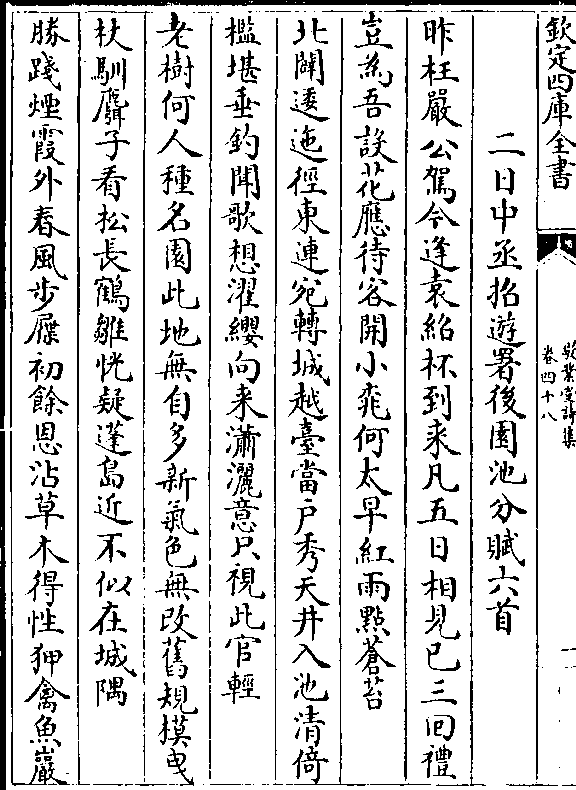 欽定四庫全書
二日中丞招遊署後園池分賦六首
昨枉嚴公駕今逢袁紹杯到来凡五日相見已三回禮
豈為吾設花應待客開小窕何太早紅雨㸃蒼苔
北闢逶迤徑東連宛轉城越臺當户秀天井入池清倚
檻堪垂釣聞歌想濯纓向来瀟灑意只視此官輕
老樹何人種名園此地無自多新氣色無改舊規模曳
杖馴麛子看松長鶴雛恍疑蓬島近不似在城隅
勝踐煙霞外春風步屧初餘恩沾草木得性狎禽魚巖
敬業堂詩集
卷四十八